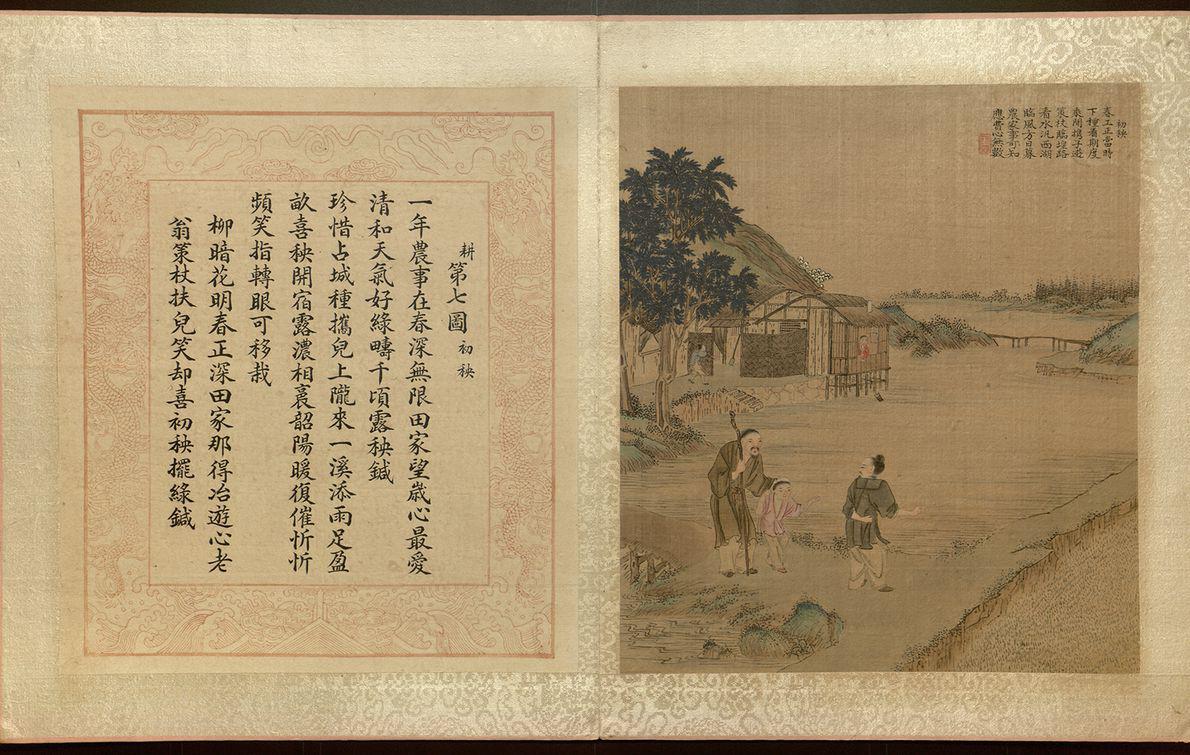 初秧
春工正當時
下種看期度
乘閒攜子遊
策杖臨堤路
看水汎西湖
臨風方日暮
農家事可知
應費心無數
耕 第七圖 初秧
一年農事在春深無限田家望歲心最愛
清和天氣好綠疇千頃露秧鍼
珍惜占城種攜兒上隴來一溪添雨足盈
畝喜秧開宿露濃相裛韶陽暖復催忻忻
頻笑指轉眼可移栽
柳暗花明春正深田家那得冶遊心老
翁策杖扶兒笑却喜初秧擺綠鍼